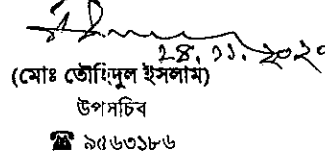 ২৪.১১.২০২০
(মোঃ তৌহিদুল ইসলাম)
উপসচিব
☎ ৯৫৬৩১৮৬